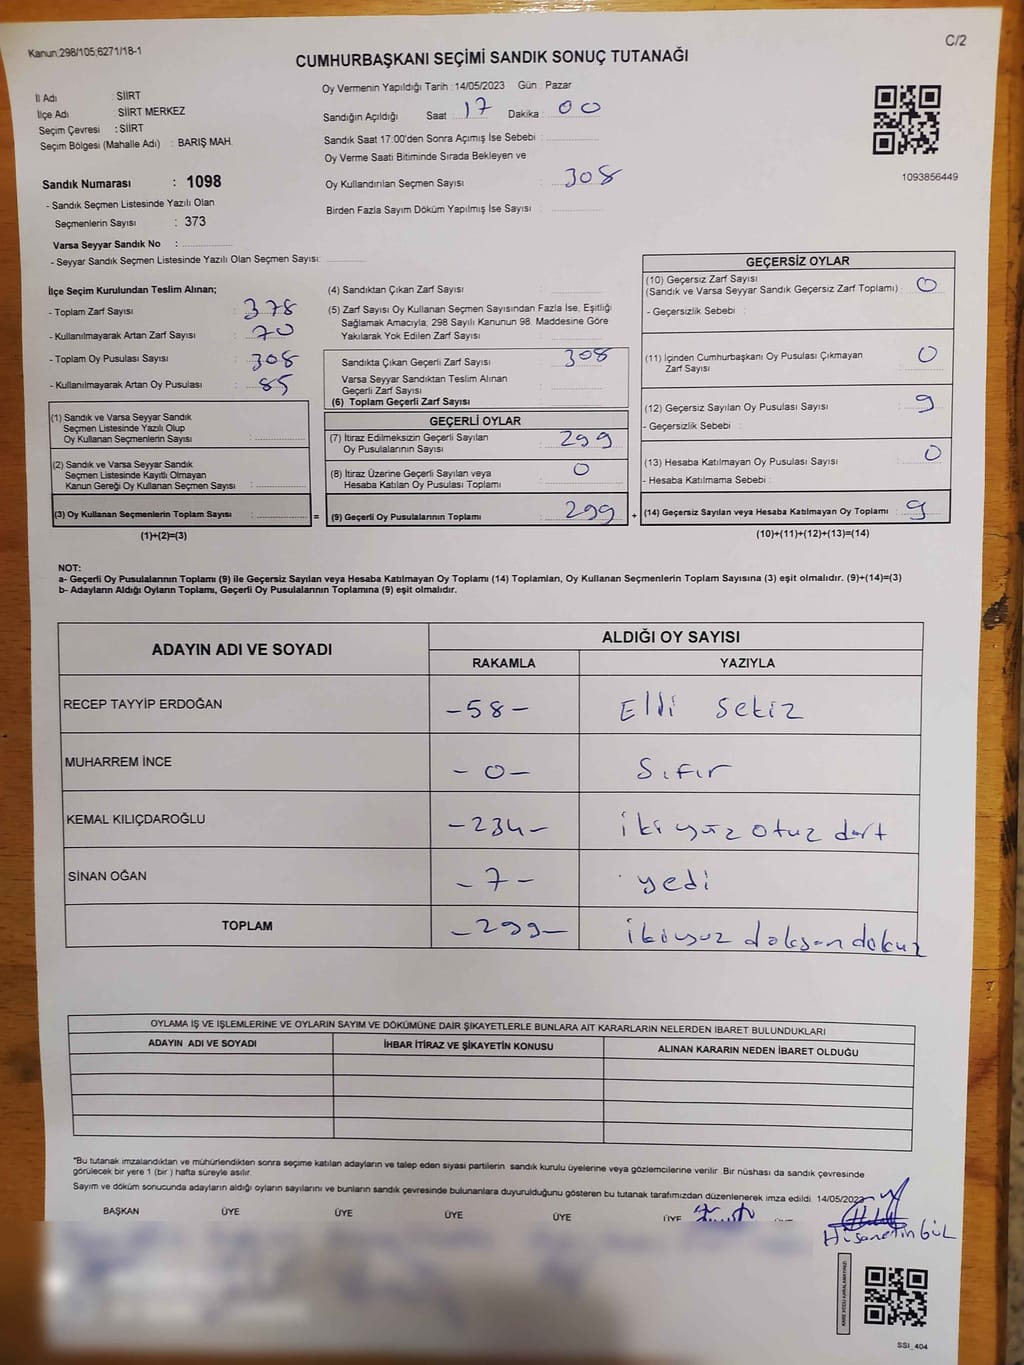 Kanun;298/105;6271/18-1
C/2
CUMHURBAŞKANI SEÇİMİ SANDIK SONUÇ TUTANAĞI
İl Adı : SİİRT
İlçe Adı : SİİRT MERKEZ
Seçim Çevresi : SİİRT
Seçim Bölgesi (Mahalle Adı) : BARIŞ MAH.
Sandık Numarası : 1098
- Sandık Seçmen Listesinde Yazılı Olan
Seçmenlerin Sayısı : 373
Varsa Seyyar Sandık No :
- Seyyar Sandık Seçmen Listesinde Yazılı Olan Seçmen Sayısı:
Oy Vermenin Yapıldığı Tarih : 14/05/2023 Gün : Pazar
Sandığın Açıldığı Saat : 17 Dakika : 00
Sandık Saat 17:00'den Sonra Açımış İse Sebebi :
Oy Verme Saati Bitiminde Sırada Bekleyen ve
Oy Kullandırılan Seçmen Sayısı : 308
Birden Fazla Sayım Döküm Yapılmış İse Sayısı :
1093856449
İlçe Seçim Kurulundan Teslim Alınan;
- Toplam Zarf Sayısı : 378
- Kullanılmayarak Artan Zarf Sayısı : 70
- Toplam Oy Pusulası Sayısı : 308
- Kullanılmayarak Artan Oy Pusulası : 85
(1) Sandık ve Varsa Seyyar Sandık
Seçmen Listesinde Yazılı Olup
Oy Kullanan Seçmenlerin Sayısı :
(2) Sandık ve Varsa Seyyar Sandık
Seçmen Listesinde Kayıtlı Olmayan
Kanun Gereği Oy Kullanan Seçmen Sayısı :
(3) Oy Kullanan Seçmenlerin Toplam Sayısı : =
(1)+(2)=(3)
(4) Sandıktan Çıkan Zarf Sayısı :
(5) Zarf Sayısı Oy Kullanan Seçmen Sayısından Fazla İse, Eşitliği
Sağlamak Amacıyla; 298 Sayılı Kanunun 98. Maddesine Göre
Yakılarak Yok Edilen Zarf Sayısı :
Sandıkta Çıkan Geçerli Zarf Sayısı : 308
Varsa Seyyar Sandıktan Teslim Alınan
Geçerli Zarf Sayısı :
(6) Toplam Geçerli Zarf Sayısı :
GEÇERLİ OYLAR
(7) İtiraz Edilmeksizin Geçerli Sayılan
Oy Pusulalarının Sayısı : 299
(8) İtiraz Üzerine Geçerli Sayılan veya
Hesaba Katılan Oy Pusulası Toplamı : 0
(9) Geçerli Oy Pusulalarının Toplamı : 299 +
GEÇERSİZ OYLAR
(10) Geçersiz Zarf Sayısı
(Sandık ve Varsa Seyyar Sandık Geçersiz Zarf Toplamı) : 0
- Geçersizlik Sebebi :
(11) İçinden Cumhurbaşkanı Oy Pusulası Çıkmayan
Zarf Sayısı : 0
(12) Geçersiz Sayılan Oy Pusulası Sayısı : 9
- Geçersizlik Sebebi :
(13) Hesaba Katılmayan Oy Pusulası Sayısı : 0
- Hesaba Katılmama Sebebi :
(14) Geçersiz Sayılan veya Hesaba Katılmayan Oy Toplamı : 9
(10)+(11)+(12)+(13)=(14)
NOT:
a- Geçerli Oy Pusulalarının Toplamı (9) ile Geçersiz Sayılan veya Hesaba Katılmayan Oy Toplamı (14) Toplamları, Oy Kullanan Seçmenlerin Toplam Sayısına (3) eşit olmalıdır. (9)+(14)=(3)
b- Adayların Aldığı Oyların Toplamı, Geçerli Oy Pusulalarının Toplamına (9) eşit olmalıdır.
ADAYIN ADI VE SOYADI
ALDIĞI OY SAYISI
RAKAMLA YAZIYLA
RECEP TAYYİP ERDOĞAN -58- Elli sekiz
MUHARREM İNCE -0- Sıfır
KEMAL KILIÇDAROĞLU -234- iki yüz otuz dört
SİNAN OĞAN -7- yedi
TOPLAM -299- ikiyüz doksan dokuz
OYLAMA İŞ VE İŞLEMLERİNE VE OYLARIN SAYIM VE DÖKÜMÜNE DAİR ŞİKAYETLERLE BUNLARA AİT KARARLARIN NELERDEN İBARET BULUNDUKLARI
ADAYIN ADI VE SOYADI İHBAR İTİRAZ VE ŞİKAYETİN KONUSU ALINAN KARARIN NEDEN İBARET OLDUĞU
"Bu tutanak imzalandıktan ve mühürlendikten sonra seçime katılan adayların ve talep eden siyasi partilerin sandık kurulu üyelerine veya gözlemcilerine verilir. Bir nüshası da sandık çevresinde
görülecek bir yere 1 (bir ) hafta süreyle asılır.
Sayım ve döküm sonucunda adayların aldığı oyların sayılarını ve bunların sandık çevresinde bulunanlara duyurulduğunu gösteren bu tutanak tarafımızdan düzenlenerek imza edildi. 14/05/2023
BAŞKAN ÜYE ÜYE ÜYE ÜYE ÜYE
Hüsanetin GÜL
SSI_404